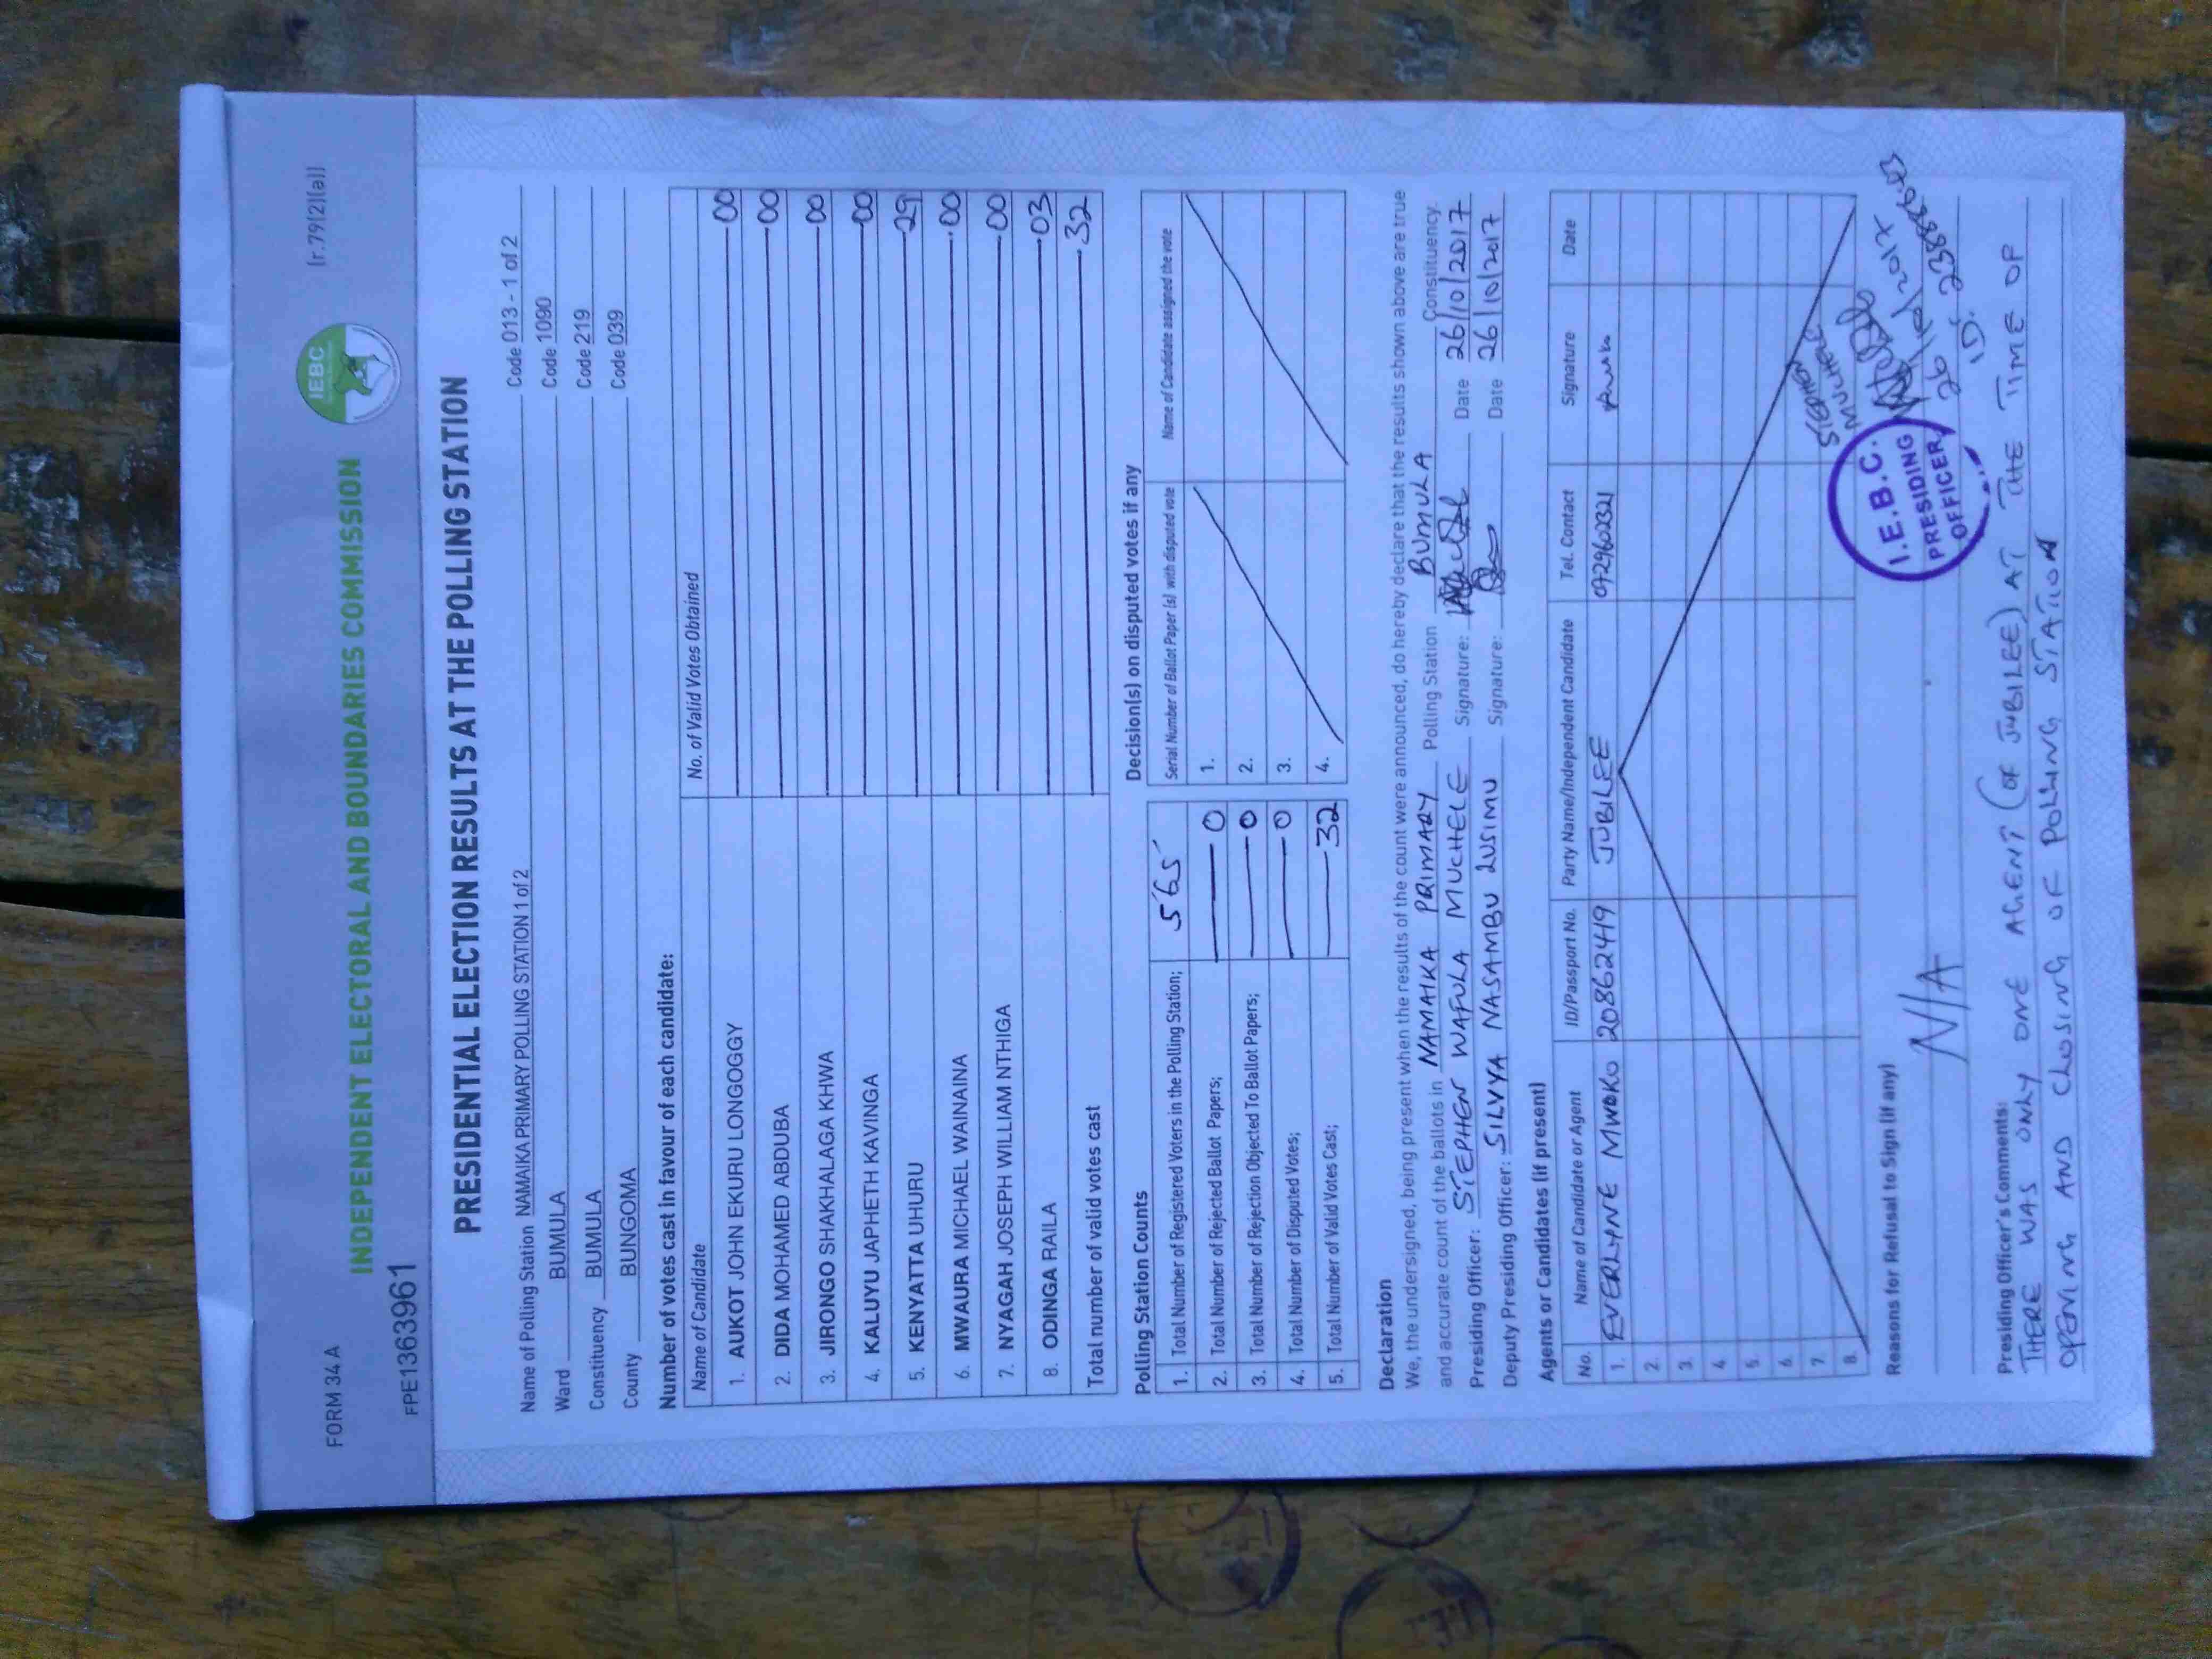 FORM 34 A
[r.79(2)(a)]
IEBC
INDEPENDENT ELECTORAL AND BOUNDARIES COMMISSION
FPE1363961
PRESIDENTIAL ELECTION RESULTS AT THE POLLING STATION
Name of Polling Station NAMAIKA PRIMARY POLLING STATION 1 of 2 Code 013 - 1 of 2
Ward BUMULA Code 1090
Constituency BUMULA Code 219
County BUNGOMA Code 039
Number of votes cast in favour of each candidate:
Name of Candidate No. of Valid Votes Obtained
1. AUKOT JOHN EKURU LONGOGGY 00
2. DIDA MOHAMED ABDUBA 00
3. JIRONGO SHAKHALAGA KHWA 00
4. KALUYU JAPHETH KAVINGA 00
5. KENYATTA UHURU 29
6. MWAURA MICHAEL WAINAINA 00
7. NYAGAH JOSEPH WILLIAM NTHIGA 00
8. ODINGA RAILA 03
Total number of valid votes cast 32
Polling Station Counts
1. Total Number of Registered Voters in the Polling Station; 565
2. Total Number of Rejected Ballot Papers; 0
3. Total Number of Rejection Objected To Ballot Papers; 0
4. Total Number of Disputed Votes; 0
5. Total Number of Valid Votes Cast; 32
Decision(s) on disputed votes if any
Serial Number of Ballot Paper (s) with disputed vote Name of Candidate assigned the vote
1.
2.
3.
4.
Declaration
We, the undersigned, being present when the results of the count were announced, do hereby declare that the results shown above are true
and accurate count of the ballots in NAMAIKA PRIMARY Polling Station BUMULA Constituency.
Presiding Officer: STEPHEN WAFULA MUCHELE Signature: Date 26/10/2017
Deputy Presiding Officer: SILVYA NASAMBU LUSIMU Signature: Date 26/10/2017
Agents or Candidates (if present)
No. Name of Candidate or Agent ID/Passport No. Party Name/Independent Candidate Tel. Contact Signature Date
1. EVERLYNE MWOKO 20862419 JUBILEE 0729602321
2.
3.
4.
5.
6.
7.
8.
STEPHEN
MUCHELE
26/10/2017
ID:
I.E.B.C.
PRESIDING
OFFICER
Reasons for Refusal to Sign (if any)
N/A
Presiding Officer's Comments:
THERE WAS ONLY ONE AGENT (OF JUBILEE) AT THE TIME OF
OPENING AND CLOSING OF POLLING STATION